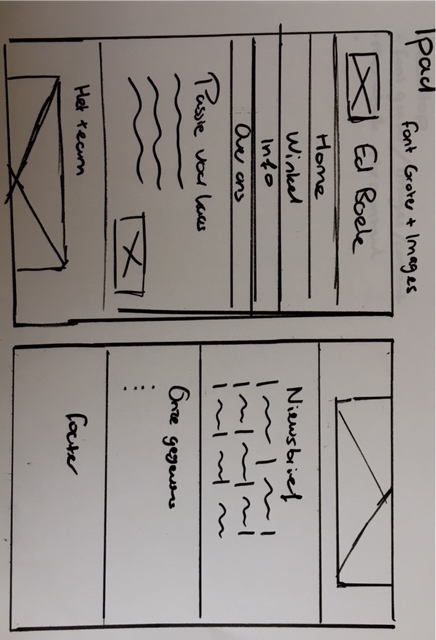 Ipad
font Groter + Images
Ed Boele
Home
Winkel
Info
Over ons
Passie voor
Het team
Nieuwsbrief
Onze gegevens
footer